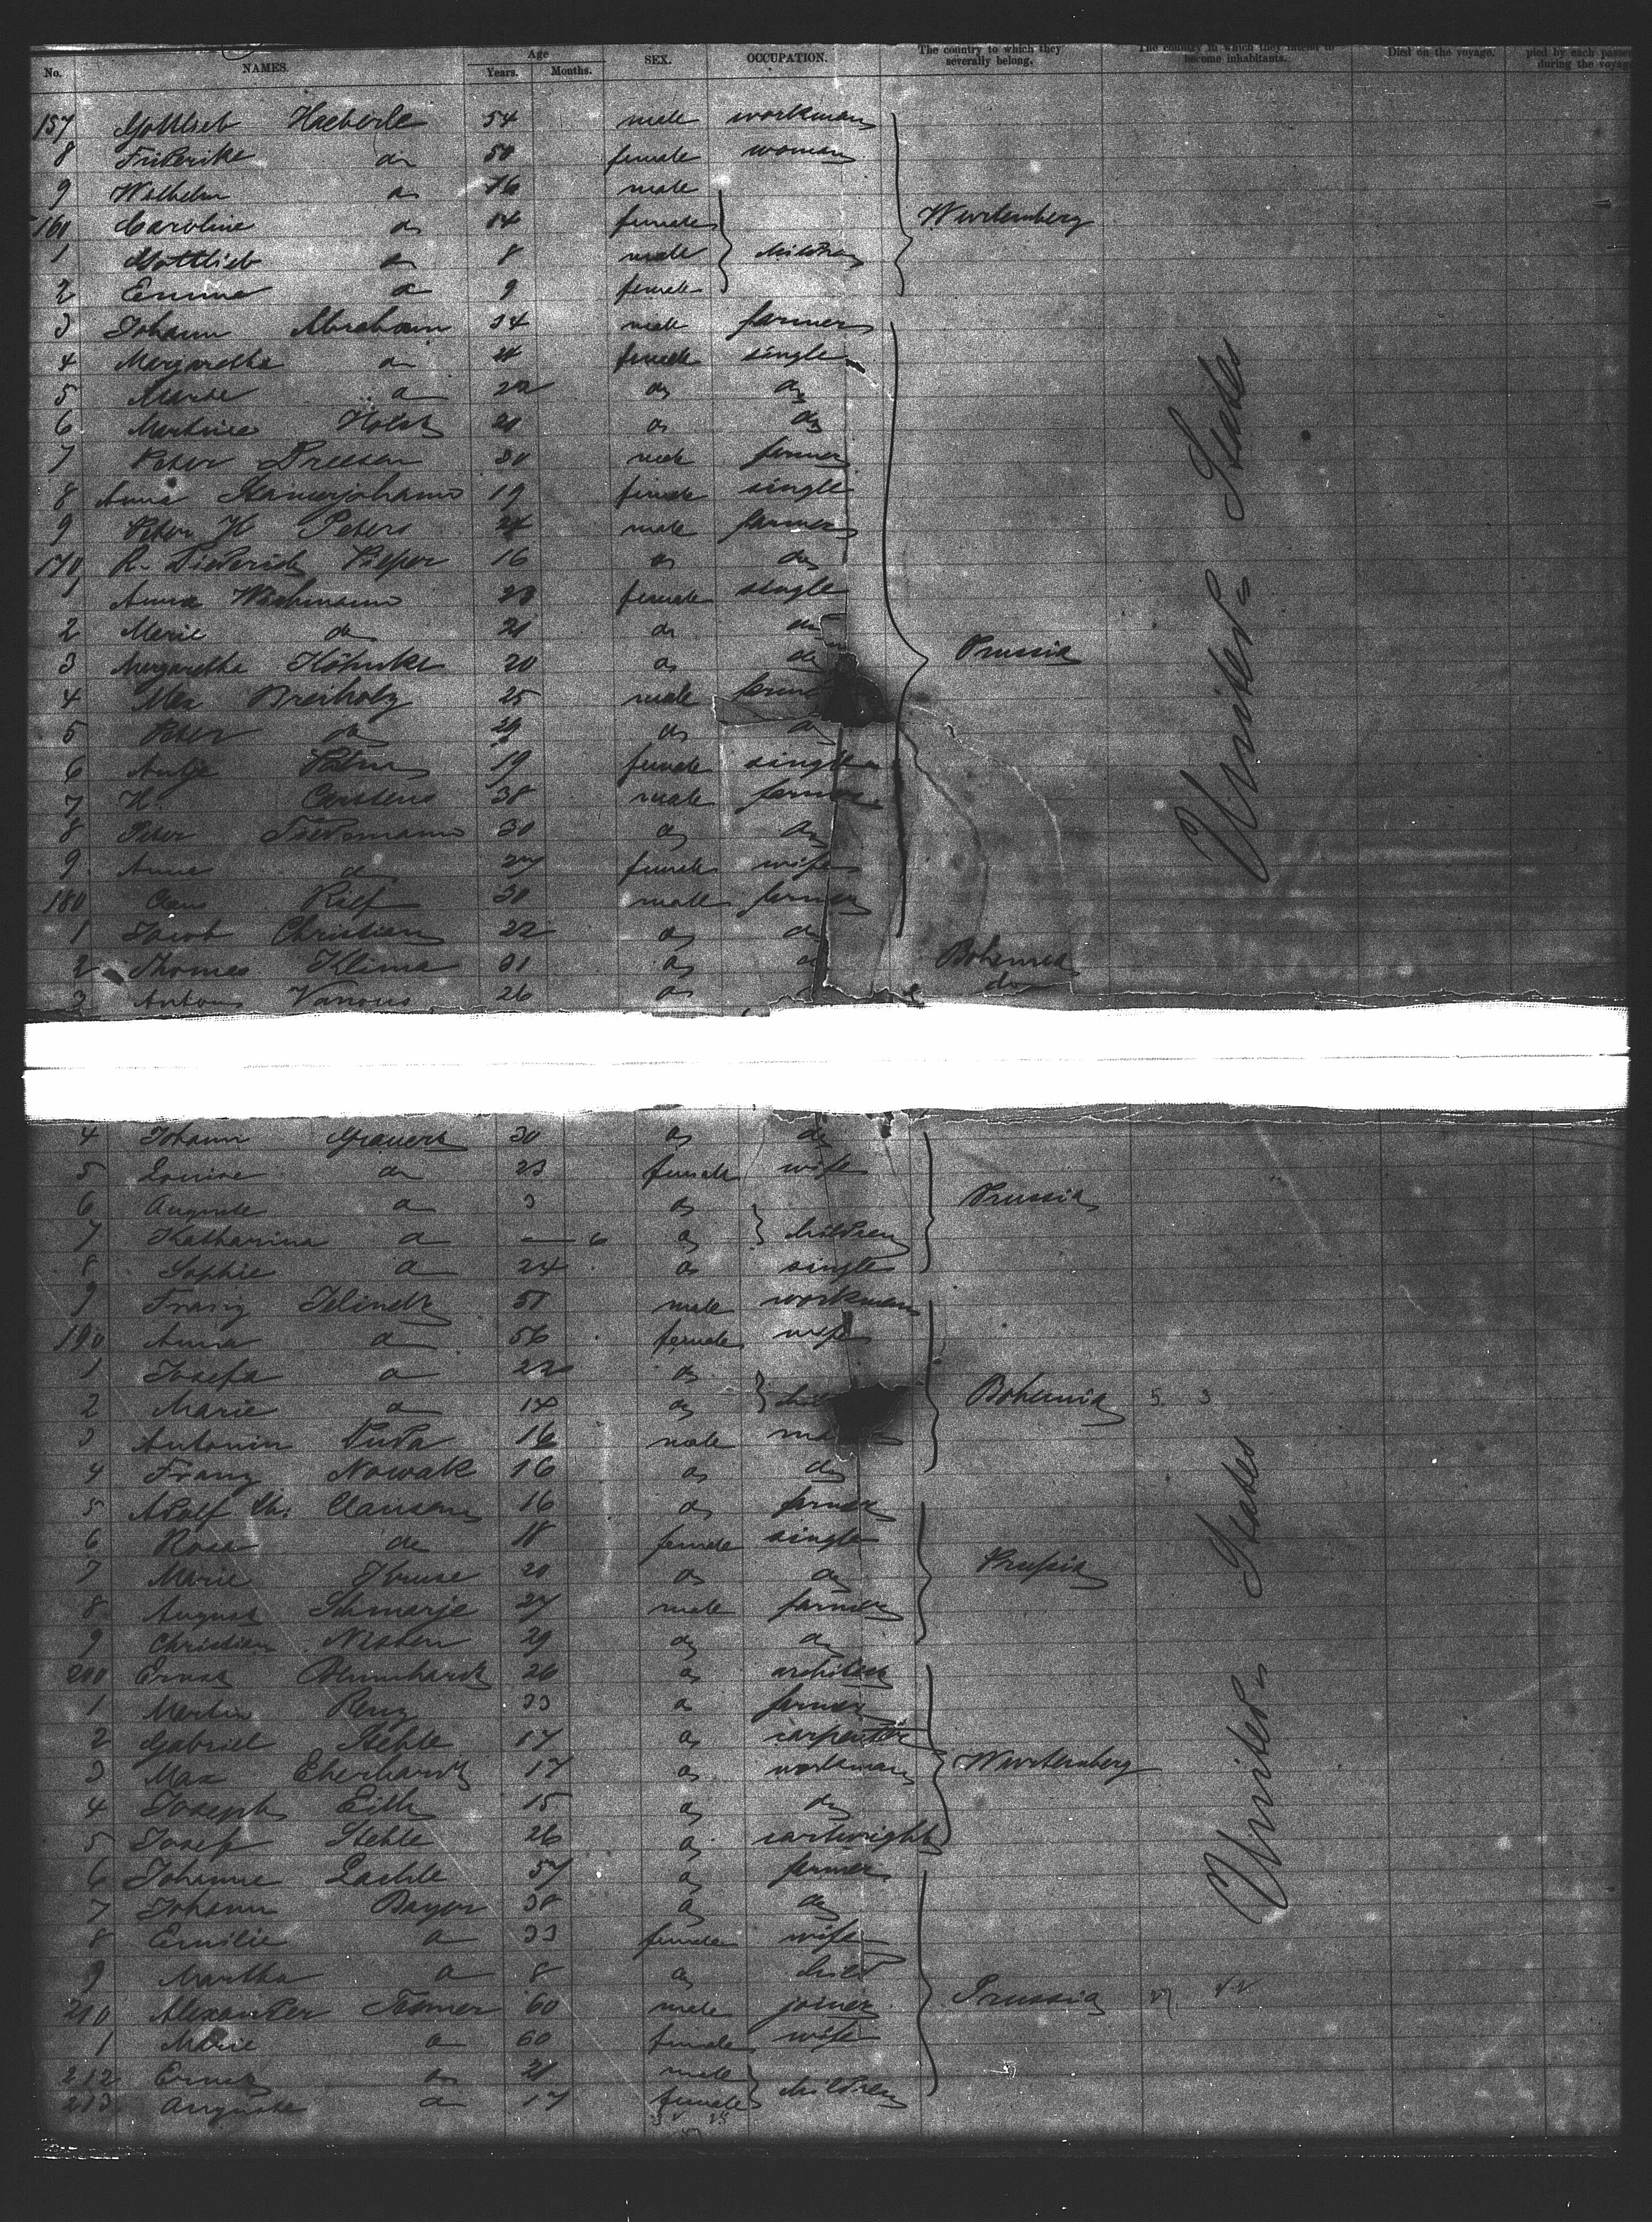 No. NAMES. Age Years. Months. SEX. OCCUPATION. The country to which they severally belong. The country in which they intend to become inhabitants. Died on the voyage. pied by each passe during the voyage
157 Gottlieb Haeberle 54 male workman
8 Friderike do 50 female woman
9 Wilhelm do 16 male
160 Caroline do 14 female Wurtemberg
1 Gottlieb do 8 male children
2 Emma do 9 female
3 Johann Abraham 34 male farmer
4 Margaretha do 24 female single
5 do 22 do do
6 Holst 21 do do
7 Peter Dreesen 30 male farmer
8 Anna Stamerjohann 19 female single
9 Peter H Peters 24 male farmer
170 R. Diederich Pieper 16 do do
1 Anna Wichmann 23 female single
2 Marie do 21 do do
3 Margaretha Höhnke 20 do do Prussia
4 Max Breiholz 25 male farmer
5 Peter do 29 do do
6 Antje 19 female single
7 H. Carstens 38 male farmer
8 Peter Tiedemann 30 do do
9 Anna do 27 female wife
180 Claus Rief 30 male farmer
1 Jacob Christian 22 do do
2 Thomas Klima 31 do do Bohemia
3 Anton Vanous 26 do do
United States
4 Johann Grauert 30 do do
5 Louise do 23 female wife
6 Auguste do 3 do Prussia
7 Katharina do — 6 do children
8 Sophie do 24 do single
9 Franz Jelinek 51 male workman
190 Anna do 56 female wife
1 Josefa do 22 do
2 Marie do 14 do Bohemia 5 3
3 Antonin Duda 16 male
4 Franz Nowak 16 do do
5 Adolf Chr. Clausen 16 do farmer
6 Rosa do 18 female single
7 Marie Kruse 20 do do Prussia
8 August Schmarje 27 male farmer
9 Christian Nissen 29 do do
200 Ernst Bernhardt 26 do architect
1 Martin Renz 33 do farmer
2 Gabriel Stehle 17 do carpenter
3 Max Eberhardt 17 do workman Wurtemberg
4 Joseph Eith 15 do do
5 Josef Stehle 26 do cartwright
6 Johann 57 do farmer
7 Johann Bayer 38 do do
8 Emilie do 33 female wife
9 Martha do 8 do child
210 Alexander 60 male joiner Prussia
1 Marie do 60 female wife
212 Ernst do 21 male
213 Auguste do 17 female children
United States